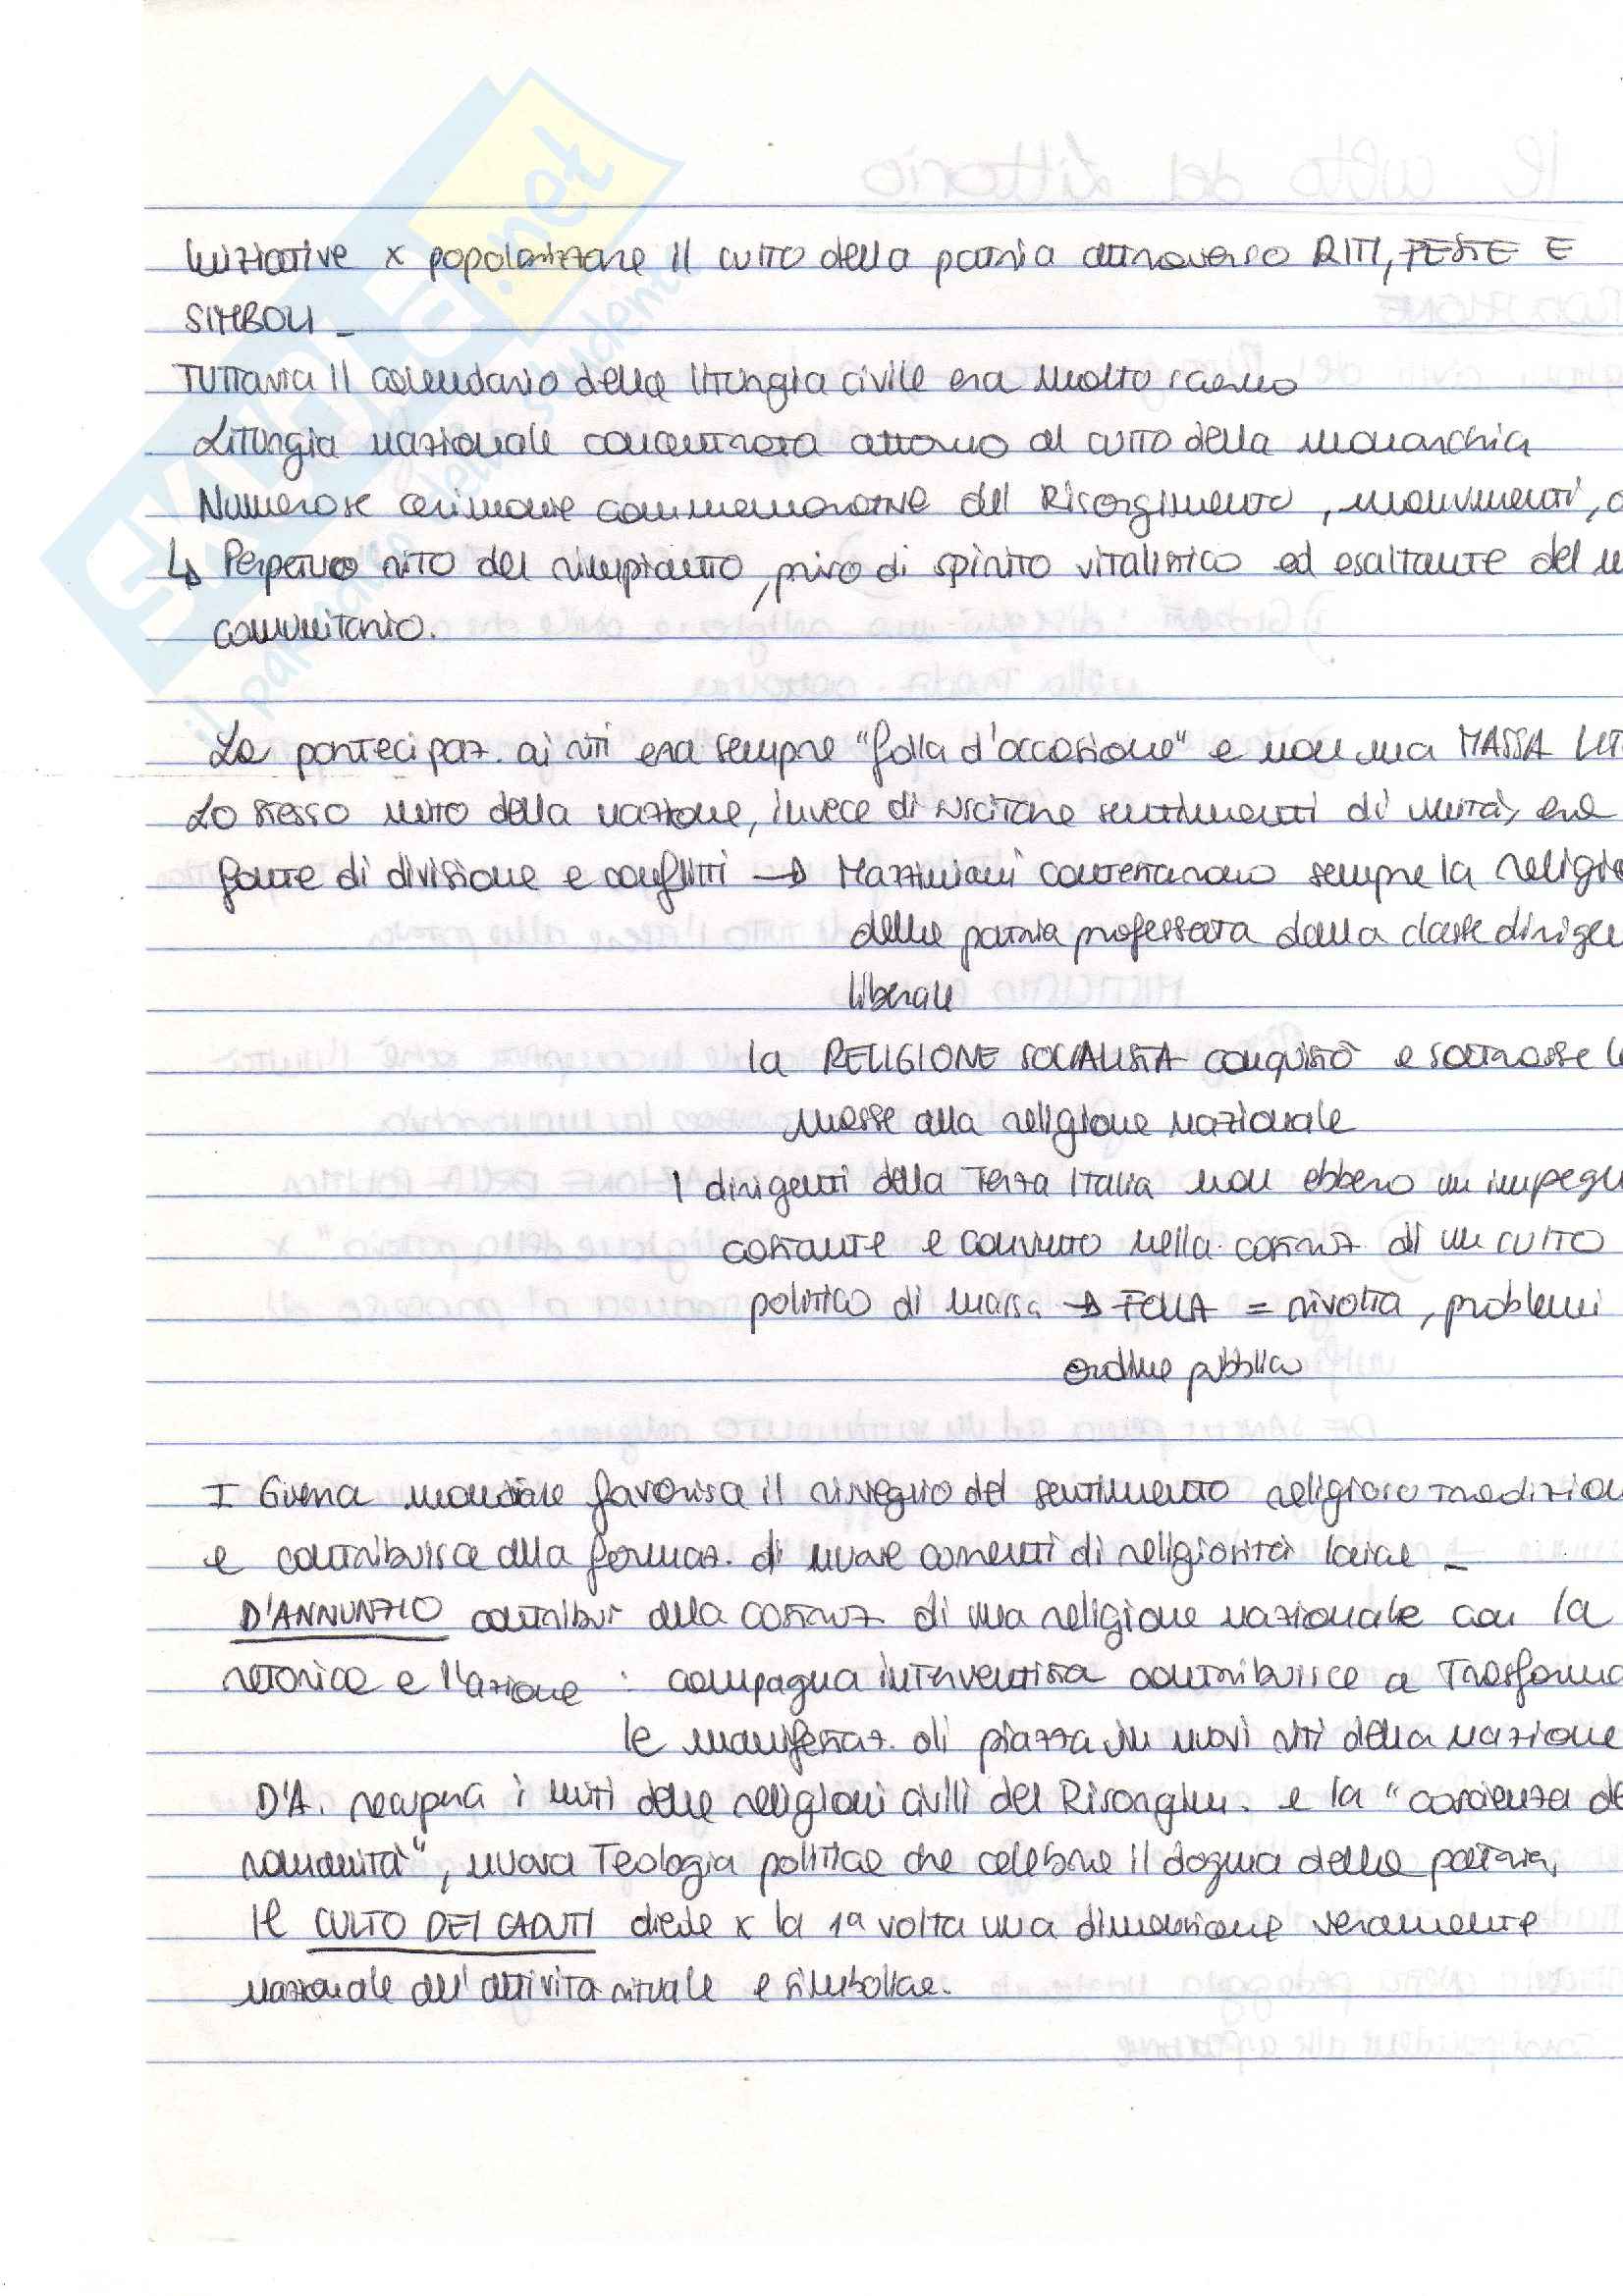 Iniziative x popolarizzare il culto della patria attraverso RITI, FESTE E
SIMBOLI _
TUTTavia il calendario della liturgia civile era molto scarno
Liturgia nazionale concentrata attorno al culto della monarchia
Numerose cerimonie commemorative del Risorgimento, monumenti,
↳ Perpetuo rito del rimpianto, privo di spirito vitalistico ed esaltante del
comunitario.
La partecipaz. ai riti era sempre "folla d'occasione" e non una MASSA LIT
Lo stesso mito della nazione, invece di suscitare sentimenti di unità, era
fonte di divisione e conflitti → Mazziniani contestarono sempre la religio
della patria professata dalla classe dirigen
liberale
la RELIGIONE SOCIALISTA conquistò e sottrasse le
masse alla religione nazionale
I dirigenti della Terza Italia non ebbero un impegn
costante e convinto nella costruz. di un culto
politico di massa → FOLLA = rivolta, problemi
ordine pubblico
I Guerra mondiale favorisca il risveglio del sentimento religioso tradizion
e contribuisca alla formaz. di nuove correnti di religiosità laica _
D'ANNUNZIO contribuì alla costruz. di una religione nazionale con la
retorica e l'azione : campagna interventista contribuisce a trasforma
le manifestaz. di piazza in nuovi riti della nazione
D'A. recupera i miti delle religioni civili del Risorgim. e la "coscienza de
romanità", nuova Teologia politica che celebra il dogma della patria,
Il CULTO DEI CADUTI diede x la 1ª volta una dimensione veramente
nazionale all'attività rituale e simbolica.
skuola.net
il paradiso dello studente